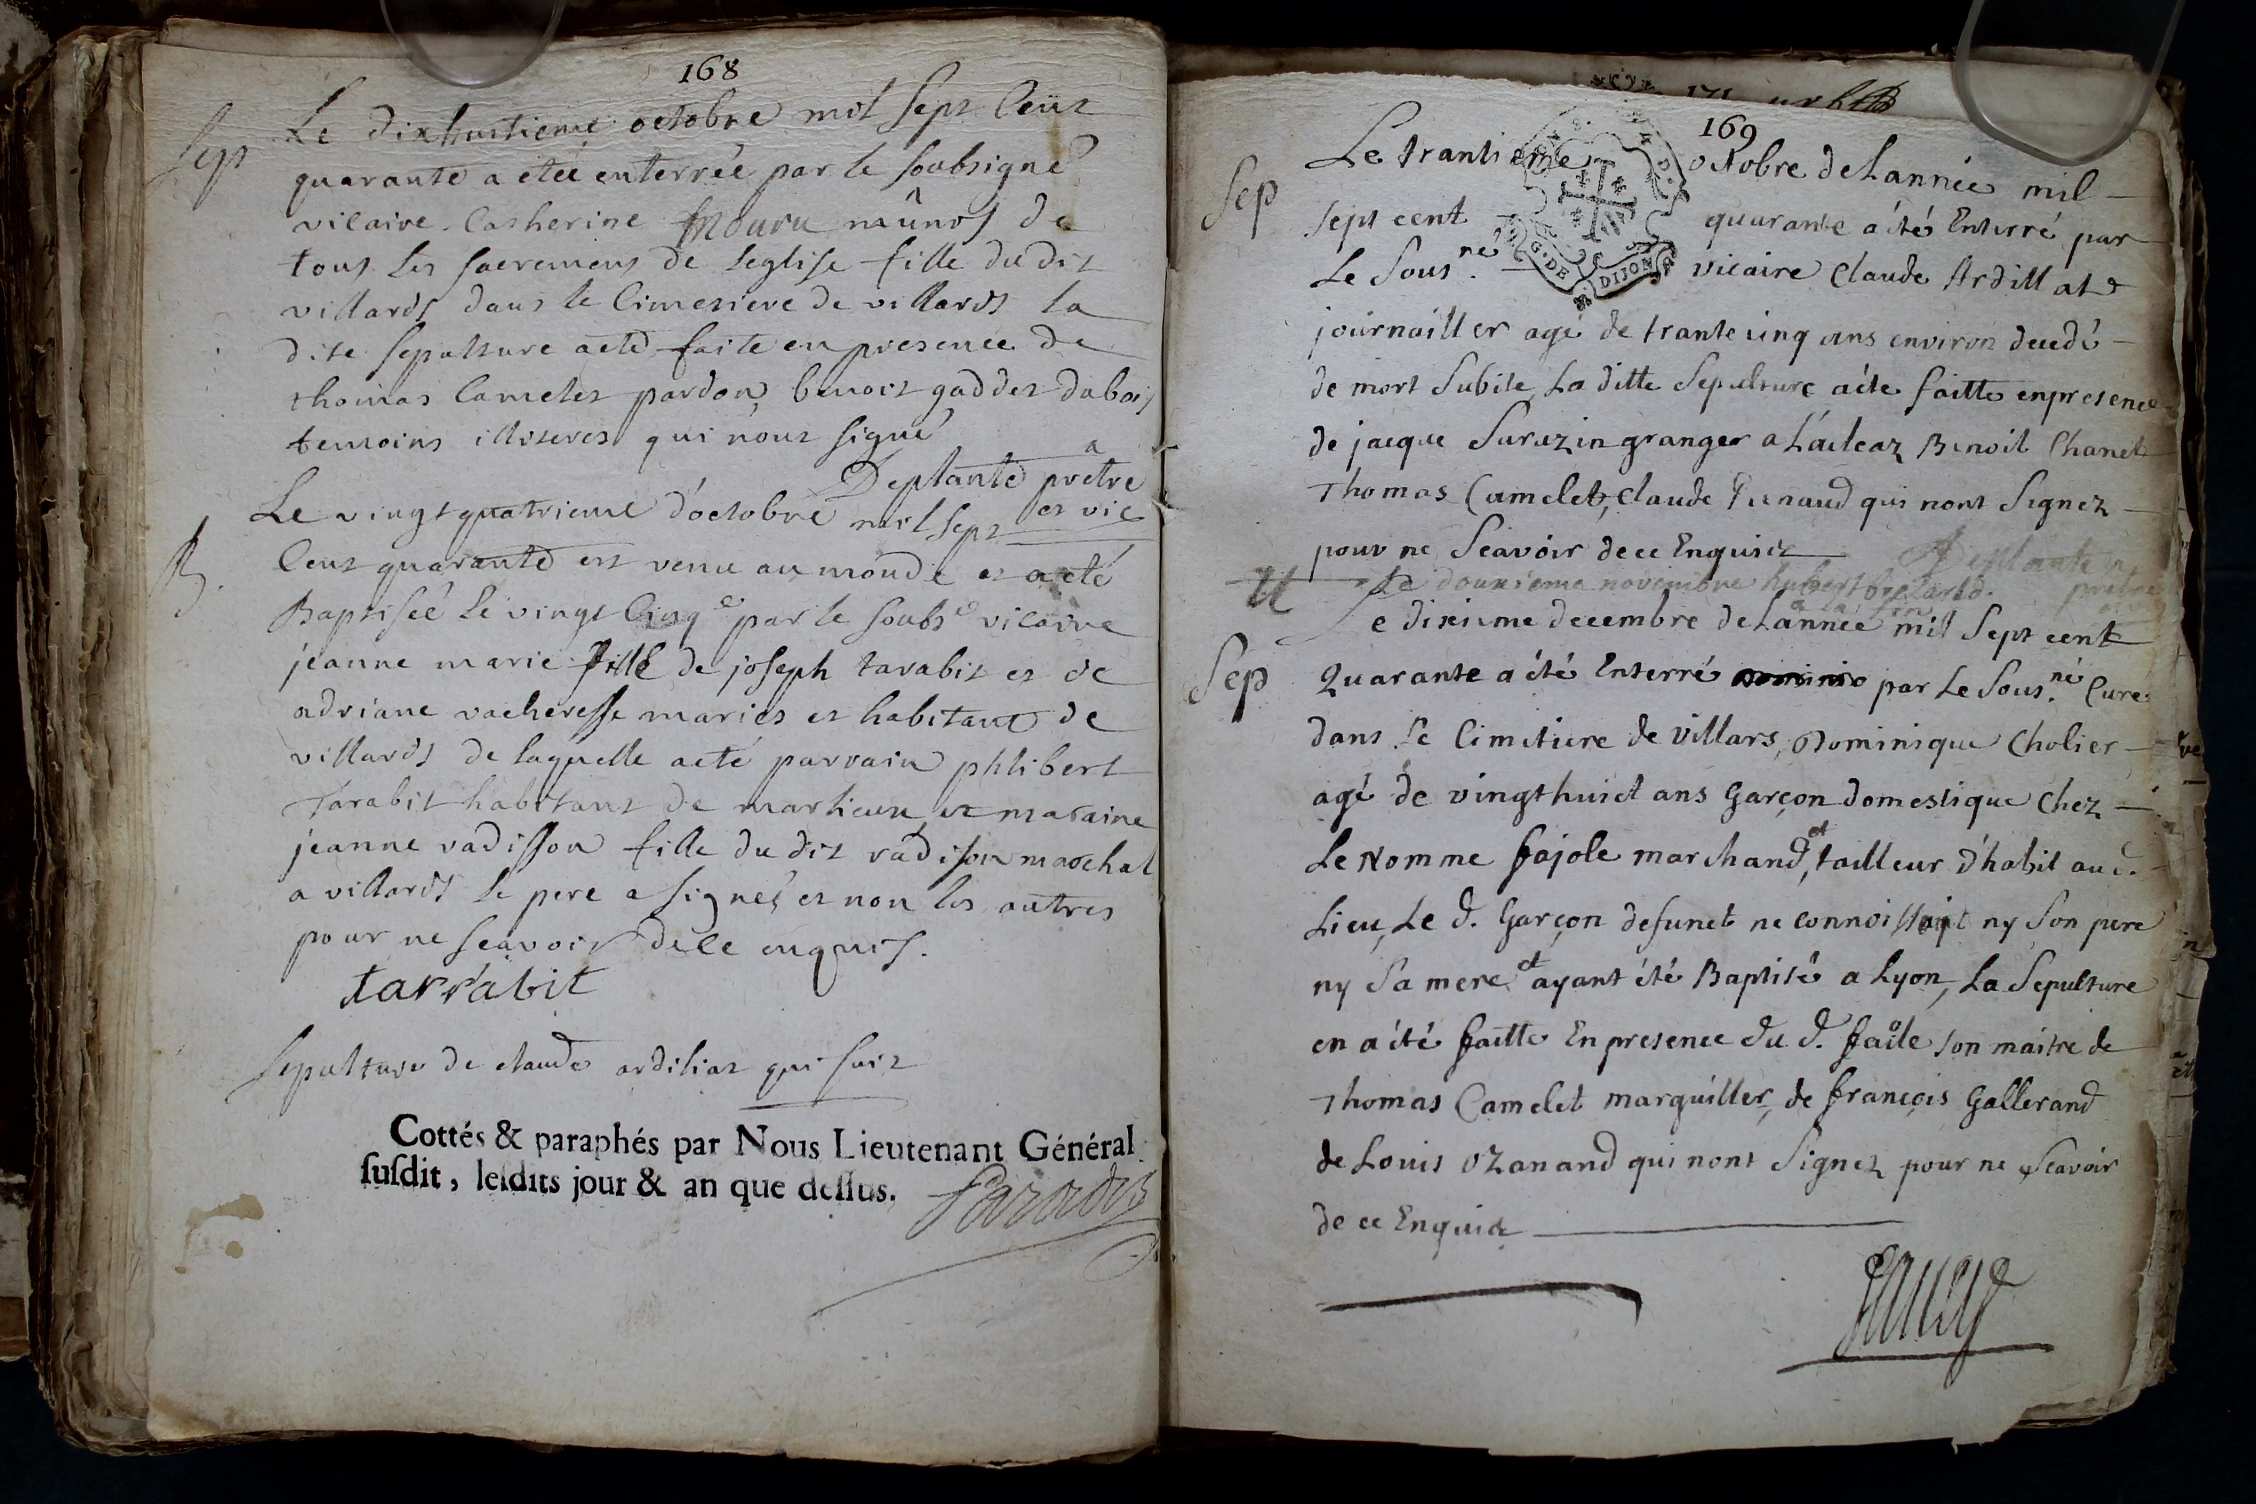 168
Sep
Le dixhuitieme octobre mil sept Cent
quarante a étée enterrée par le soubsigné
vicaire Catherine mouru mûnos de
tous les sacremens de leglise fille dudit
villards dans le Cimetiere de villards la
dite sepulture aeté faite en presence de
thomas Camelet pardon, benoit gaddet dubois
temoins illiterés qui n'ont signé
Deplante prêtre
et vic
B.
Le vingtquatrieme d'octobre mil sept
Cent quarante est venu au monde et aeté
Baptiseé le vingt Cinqe par le soubsé vicaire
jeanne marie fille de joseph tarabit et de
adriane vacheresse mariés et habitant de
villards de laquelle aeté parrain philibert
Tarabit habitant de marlieux et maraine
jeanne radisson fille du dit radison marchal
a villards le pere a signé et non les autres
pour ne scavoir de ce enquis.
tarrabit
sepulture de claude ardiliat qui suit
Cottés & paraphés par Nous Lieutenant Général
susdit, lesdits jour & an que dessus.
169
Sep
Le trantieme octobre de Lannée mil
sept cent quarante a été Enterré par
Le Sous.né vicaire Claude Ardillat
journailler agé de trante cinq ans environ decedé
de mort Subite, La ditte Sepulture aéte faitte enpresence
de jacque Surazin granger a Benoit Chanet
Thomas Camelet, Claude qui nont Signez
pour ne Scavoir de ce Enquist
Deplante
prêtre
Le douxieme novembre hubert
G. DE DIJON
Sep
Le dixieme decembre de Lannée mil Sept cent
Quarante a été Enterré par Le Sous.né Curé
dans le Cimetiere de villars, Dominique Cholier
agé de vingthuict ans Garçon domestique Chez
Le Nomme fajole marchand, et tailleur d'habit aud.
Lieu, Le d. Garçon defunct ne connoissoit ny Son pere
ny Sa mere et ayant été Baptisé a Lyon, La Sepulture
en a été faitte En presence du d. faiole son maitre de
Thomas Camelet marguiller, de françois Gallerand
de Louis Ozanand qui nont Signez pour ne Scavoir
de ce Enquist